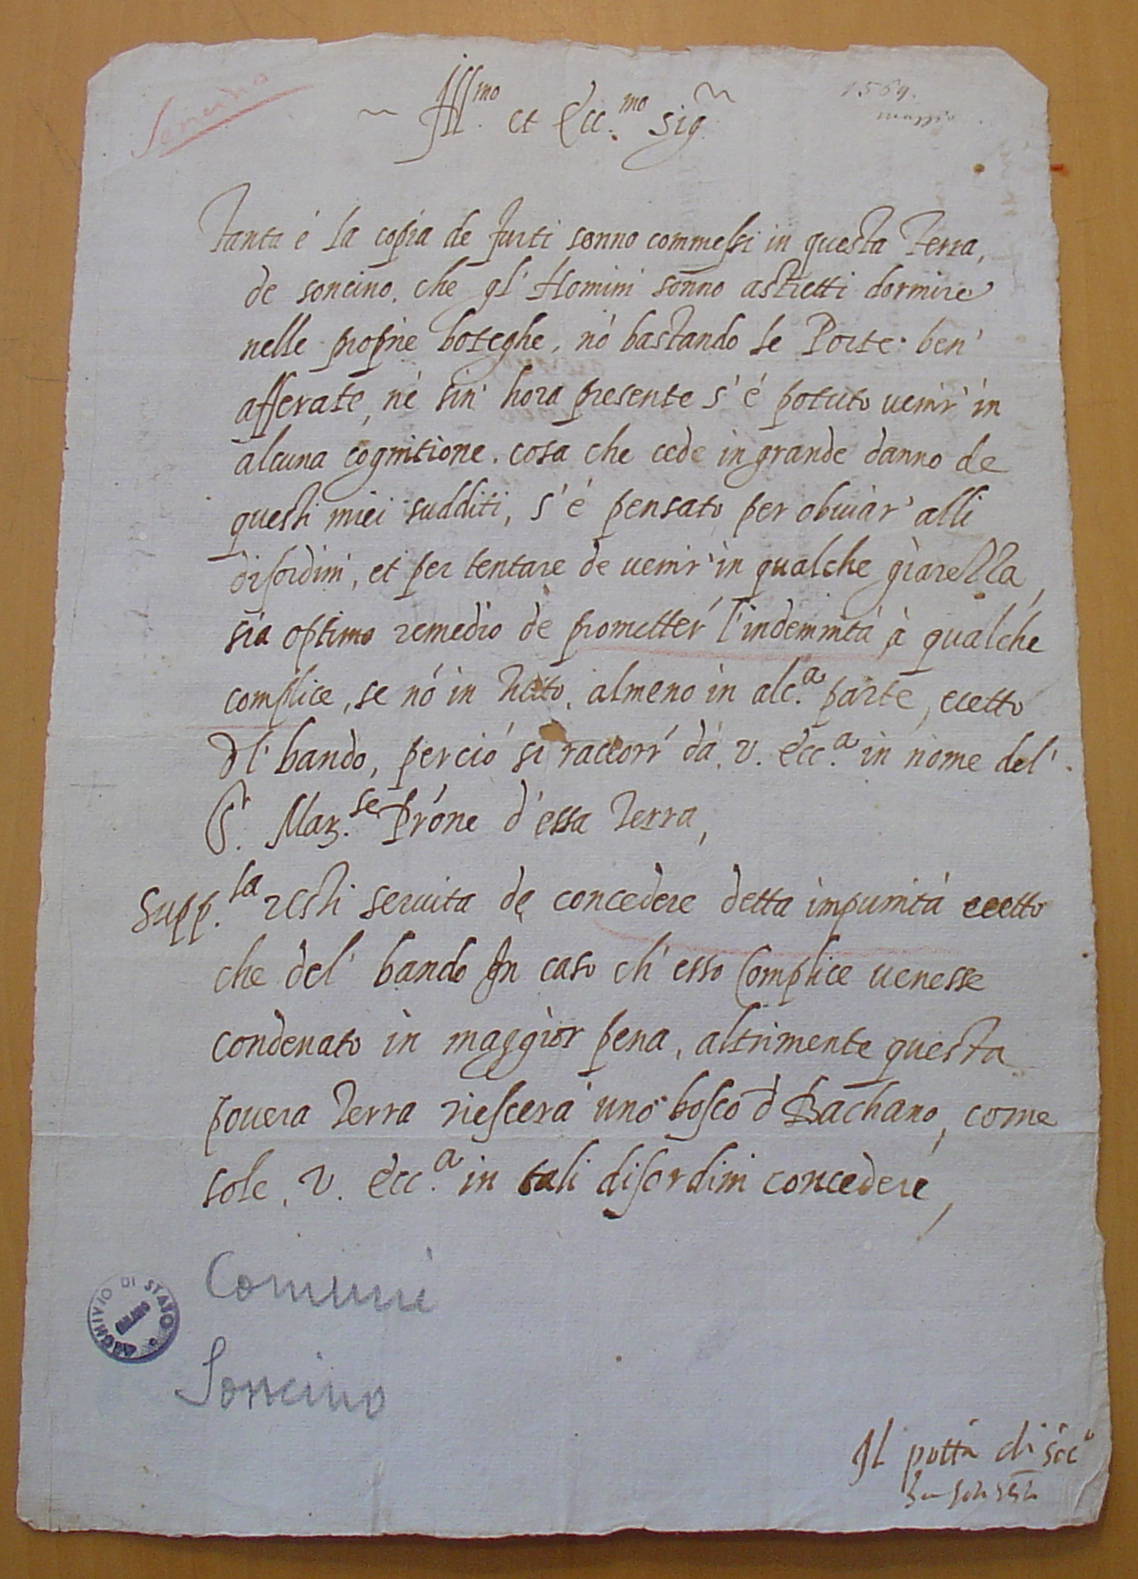 Soncino
1569.
Ill.mo et Ecc.mo sig.
Tanta é la copia de furti sonno commessi in questa Terra,
de soncino. che gl' Homini sonno astretti dormire
nelle proprie boteghe, nó bastando le Porte ben'
afferate, né sin' hora presente s' é potuto venir' in
alcuna cognitione. cosa che cede in grande danno de
questi miei sudditi, s' é pensato per obviar' alli
disordini, et per tentare de venir' in qualche
sia optimo remedio de prometter' l'indemnità à qualche
complice, se nó in tutto, almeno in alc.a parte, ecetto
dl' bando, perció si raccorr' da. v. Ecc.a in nome del'
S.r Mar.se Prone d' essa Terra,
Supp.la resti servita de concedere detta impunità ecetto
che del' bando In caso ch' esso Complice venesse
condenato in maggior pena, altrimente questa
povera Terra riescerà uno bosco d Bachano, come
sole. v. Ecc.a in tali disordini concedere,
Comuni
Soncino
ARCHIVIO DI STATO
MILANO
Il pottà di